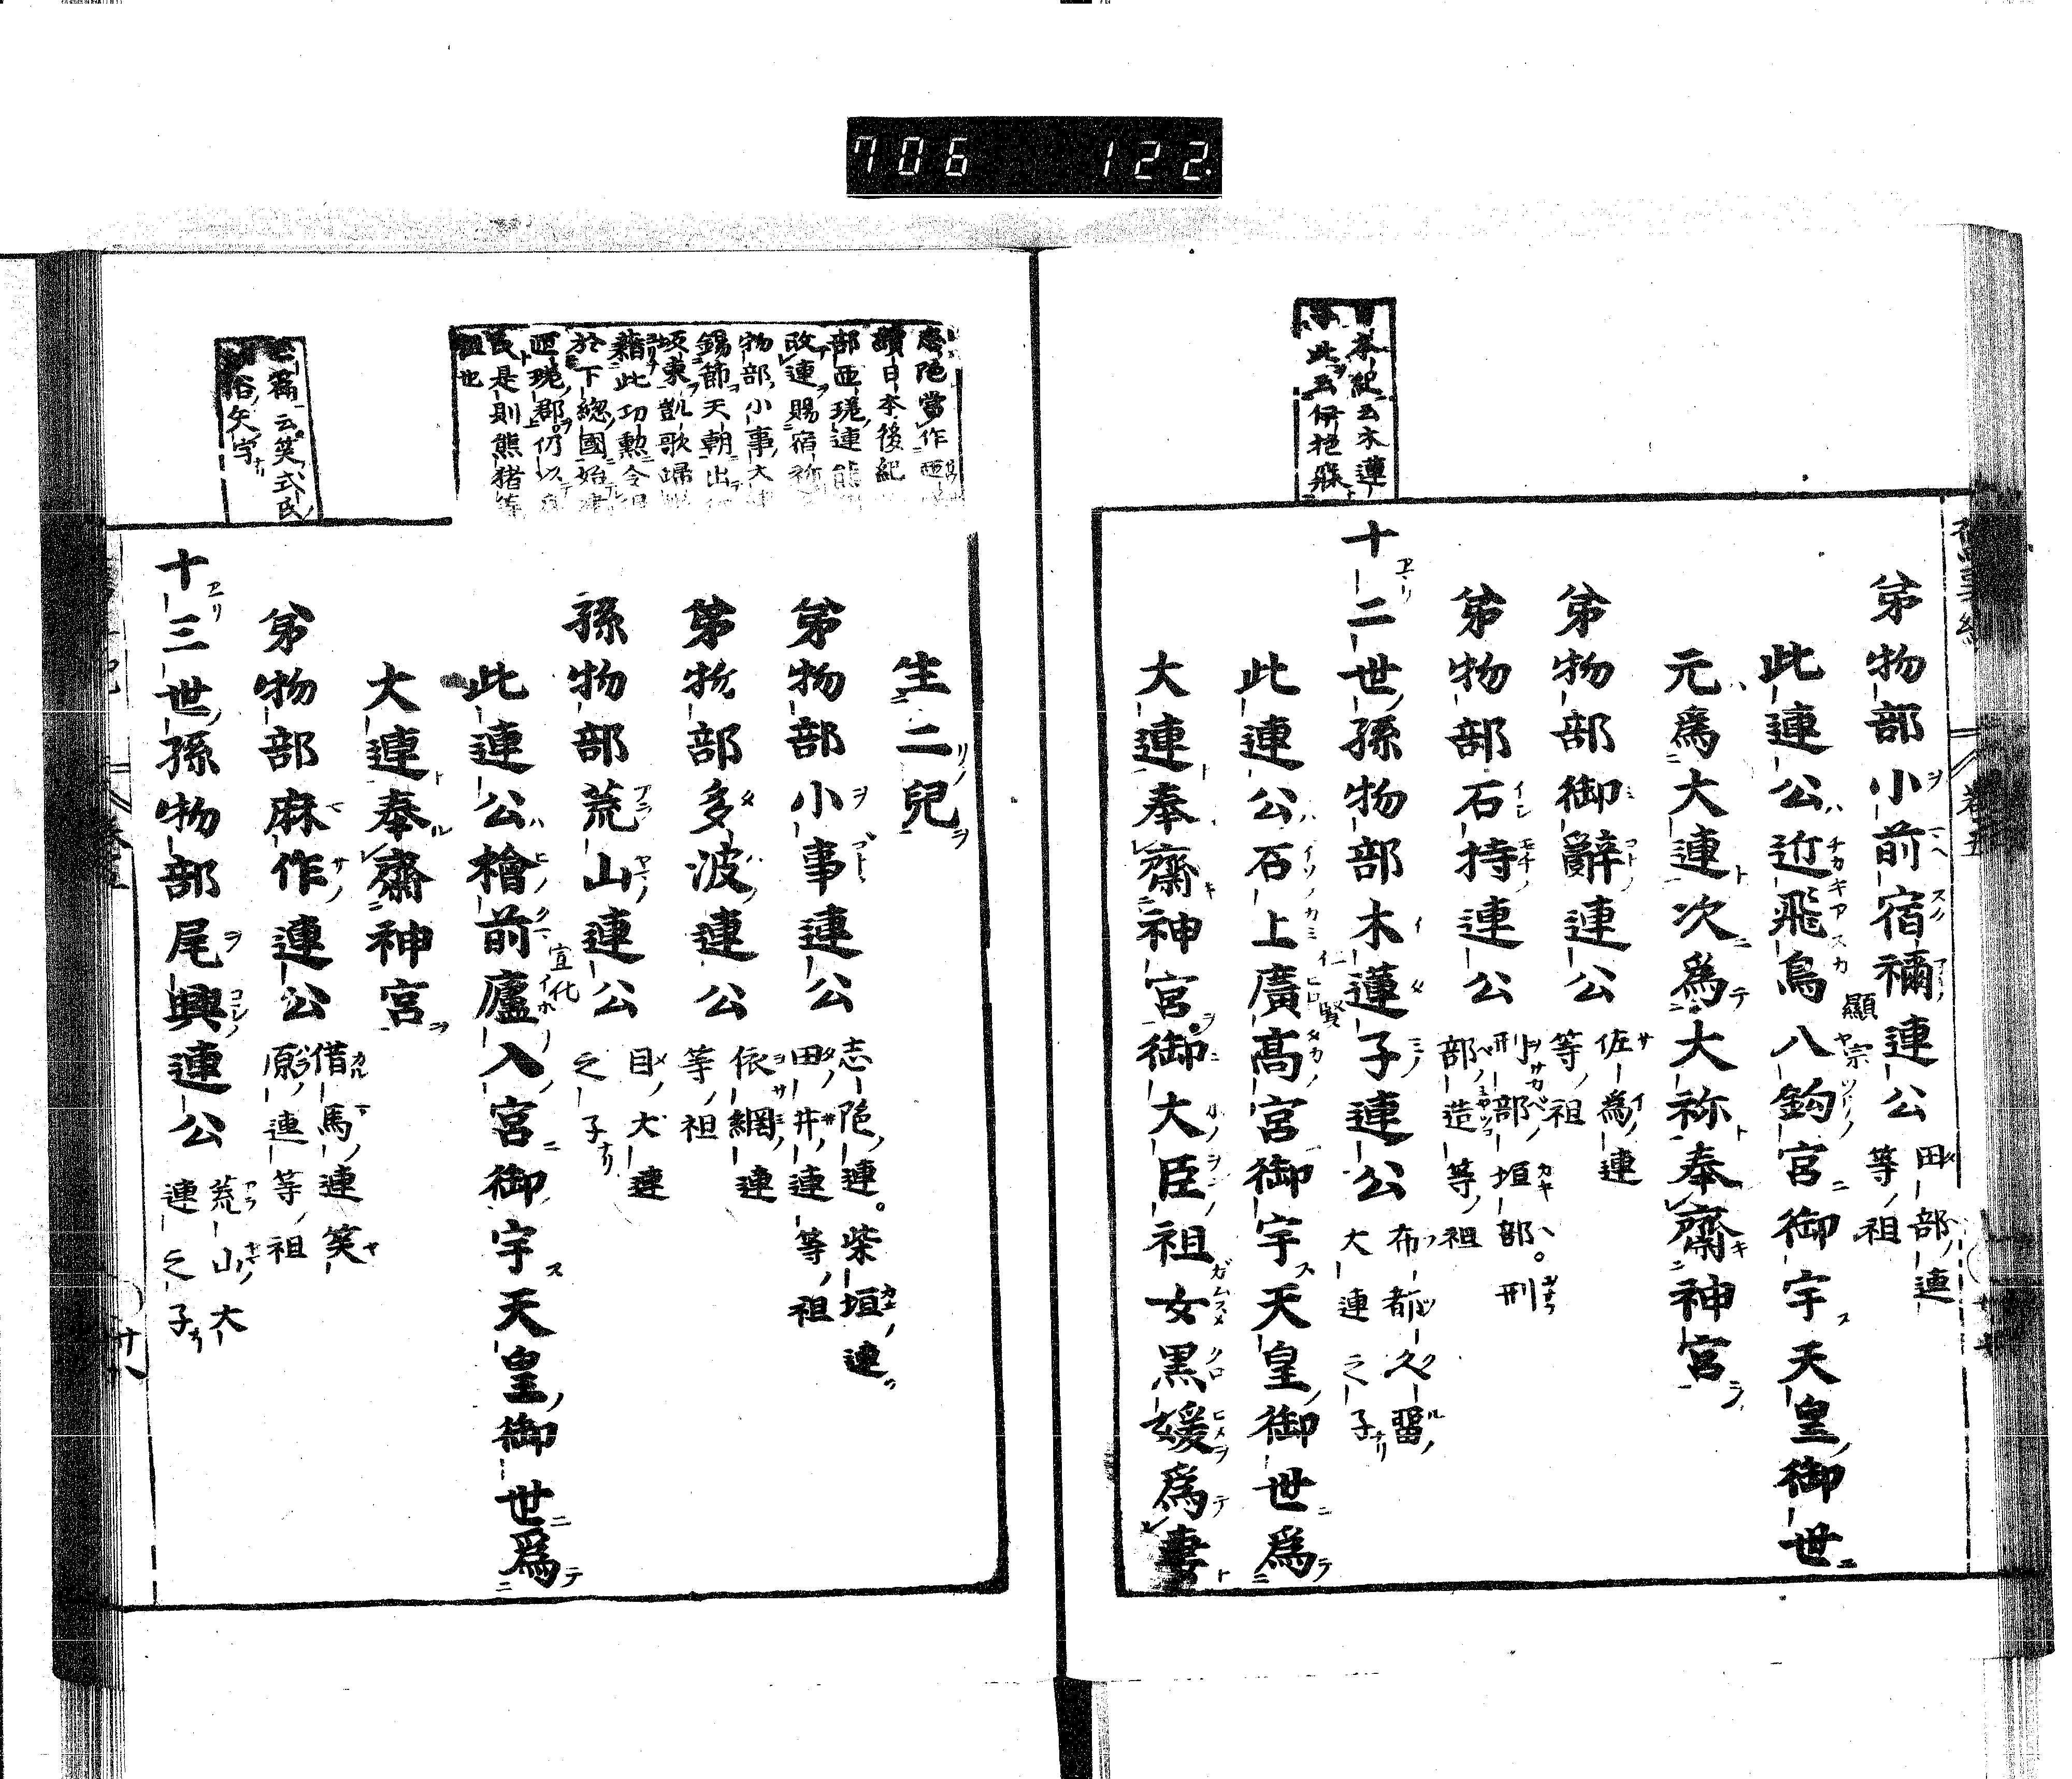 706 122.
本紀云木蓮
此云伊抱寐
弟物部小前宿禰連公 田部連
等祖
此連公近飛鳥八釣宮御宇天皇御世
顯宗
元爲大連次爲大祢奉齋神宮
弟物部御辭連公 佐爲連
等祖
弟物部石持連公 刑部垣部。刑
部造等祖
十二世孫物部木蓮子連公 布都久留
大連之子
此連公石上廣高宮御宇天皇御世爲
仁賢
大連奉齋神宮御大臣祖女黒媛爲妻
志陁當作匝
讀日本後紀
部匝瑳連熊
改連賜宿祢
物部小事大連
錫節天朝出
坂東凱歌歸
藉此功勲令
於下總國始建
匝瑳郡仍以爲
氏是則熊猪等
祖也
篇云笑式民
俗矢字
生二兒
弟物部小事連公 志陁連。柴垣連
田井連等祖
弟物部多波連公 依網連
等祖
孫物部荒山連公 目大連
之子
此連公檜前廬入宮御宇天皇御世爲
宣化
大連奉齋神宮
弟物部麻作連公 借馬連笑
原連等祖
十三世孫物部尾興連公 荒山大
連之子
卷五
十八